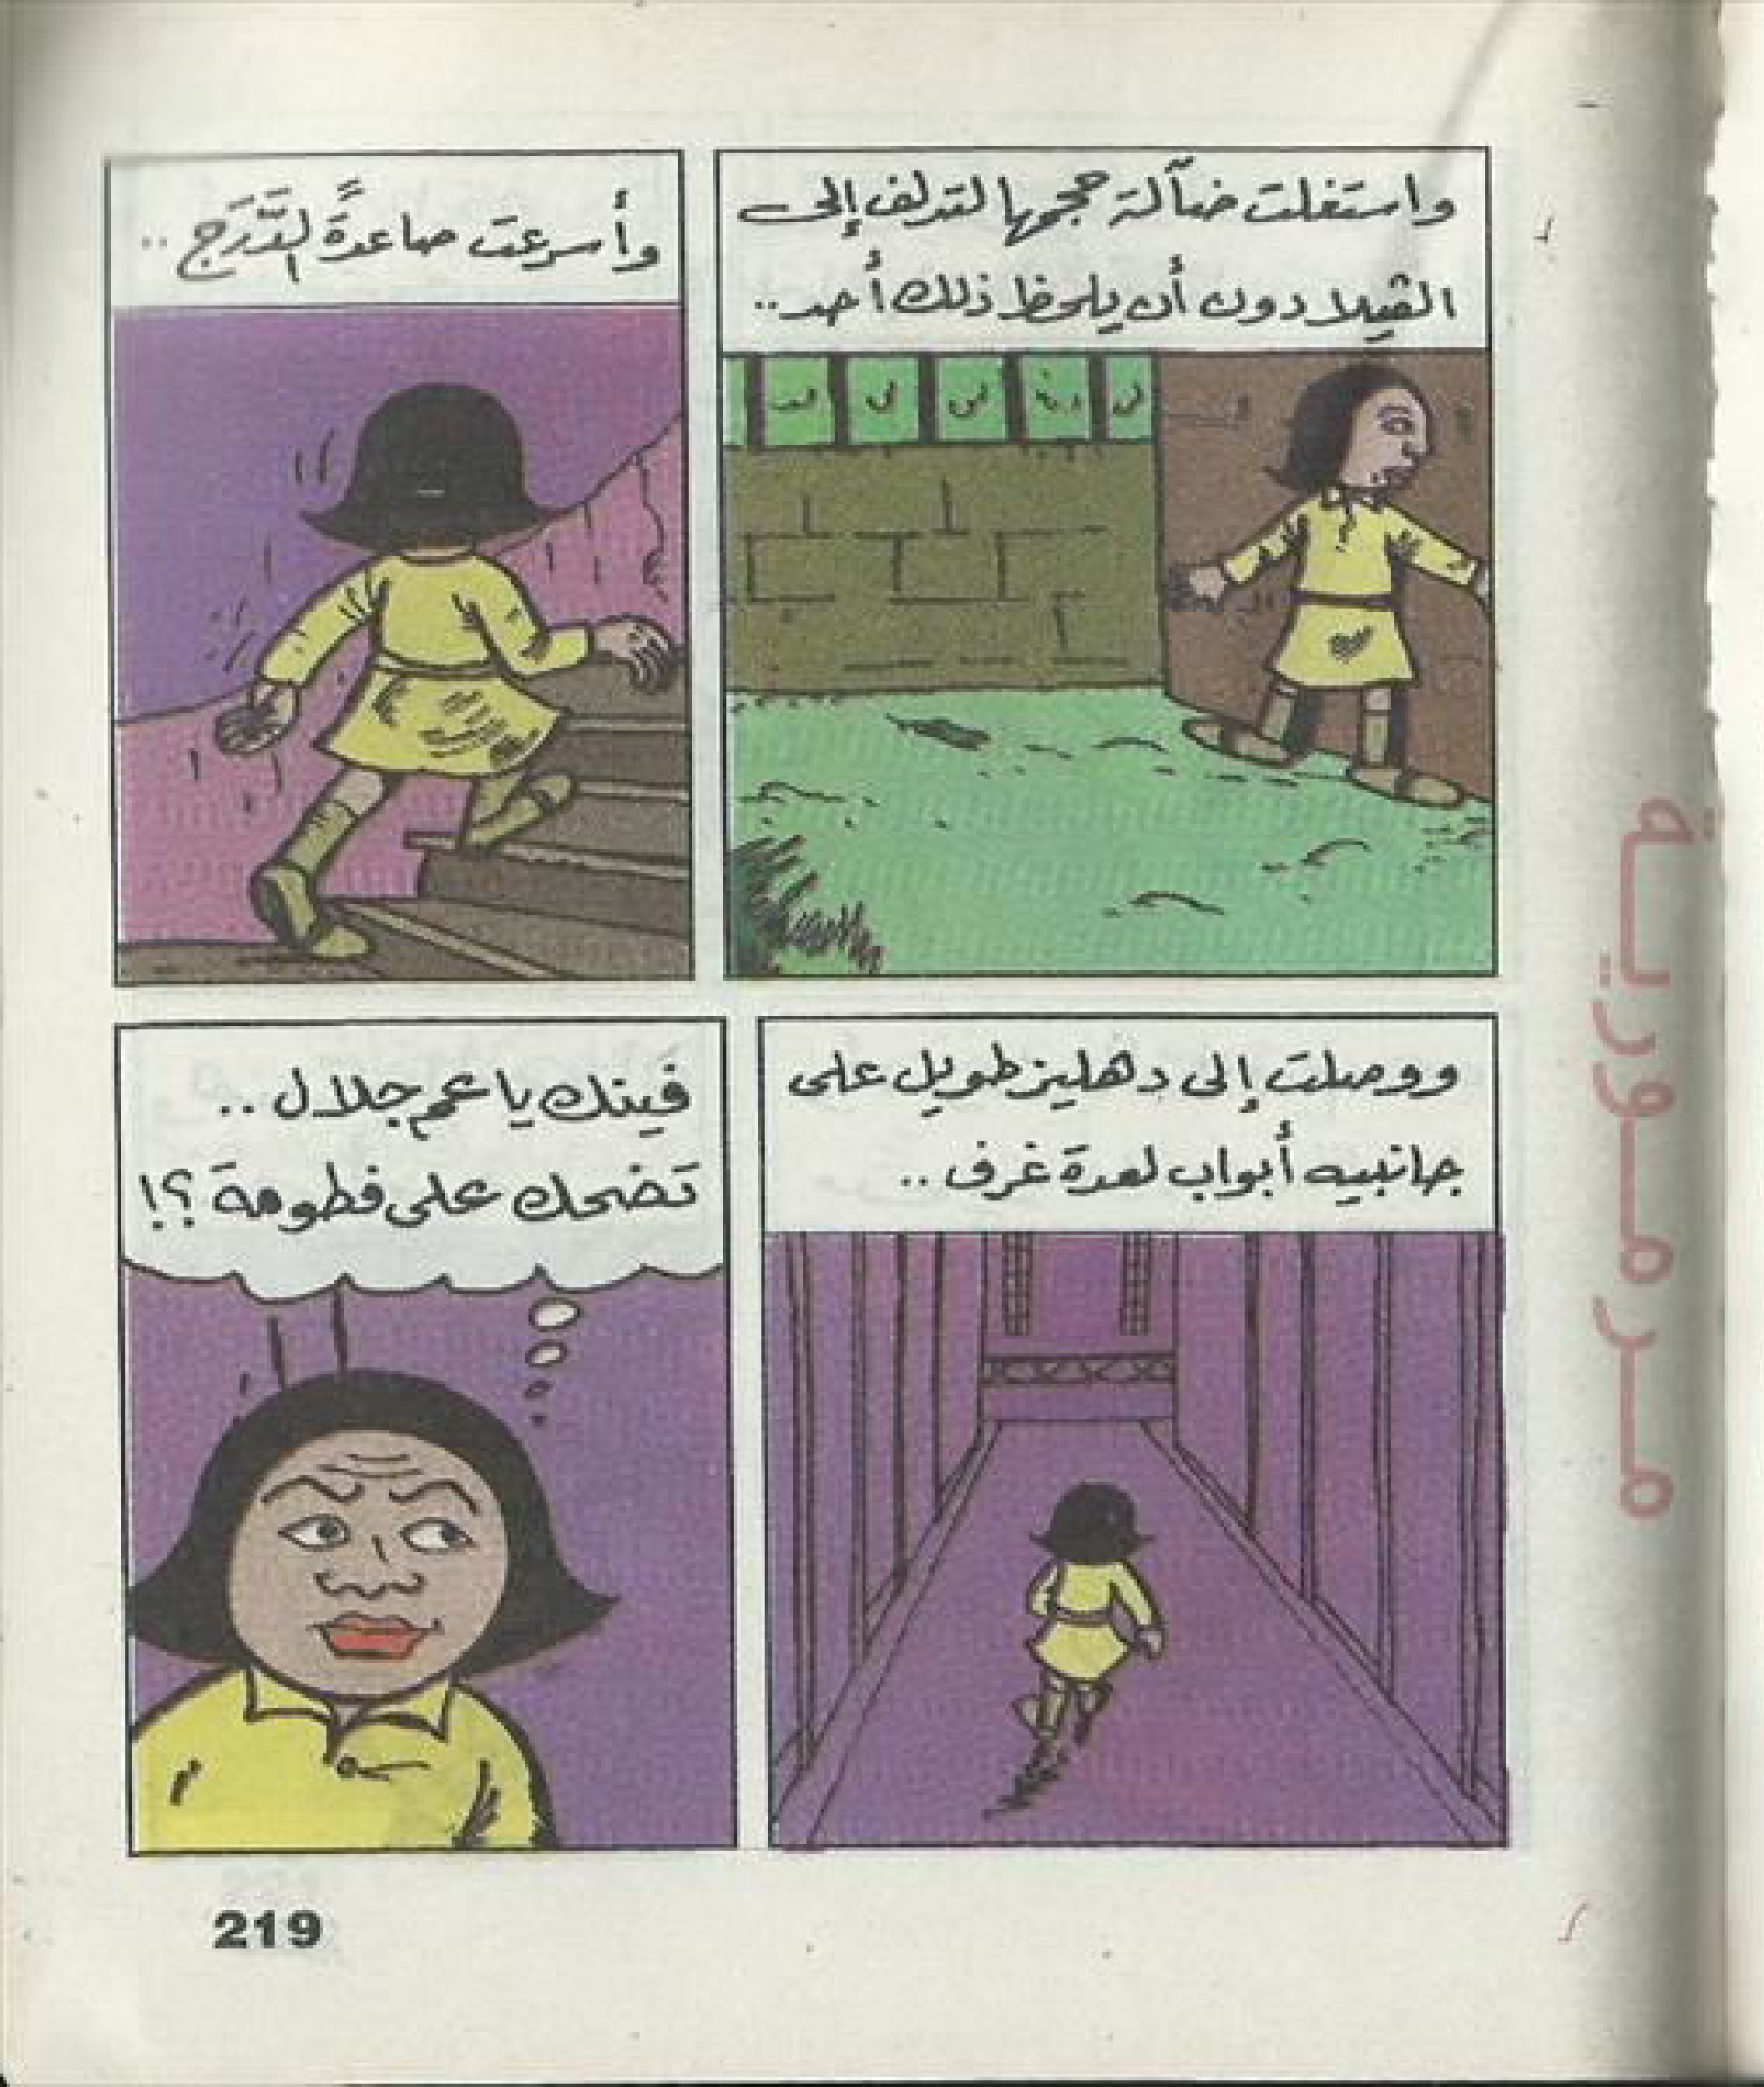 واستغلت ضآلة حجمها لتدلف إلى
الڤيلا دون أن يلحظ ذلك أحد..
وأسرعت صاعدةً الدَّرَج ..
ووصلت إلى دهليز طويل على
جانبيه أبواب لعدة غرف ..
فَينك يا عم جلال ..
تَضحك على فطومةَ ؟!
219
مرمورية